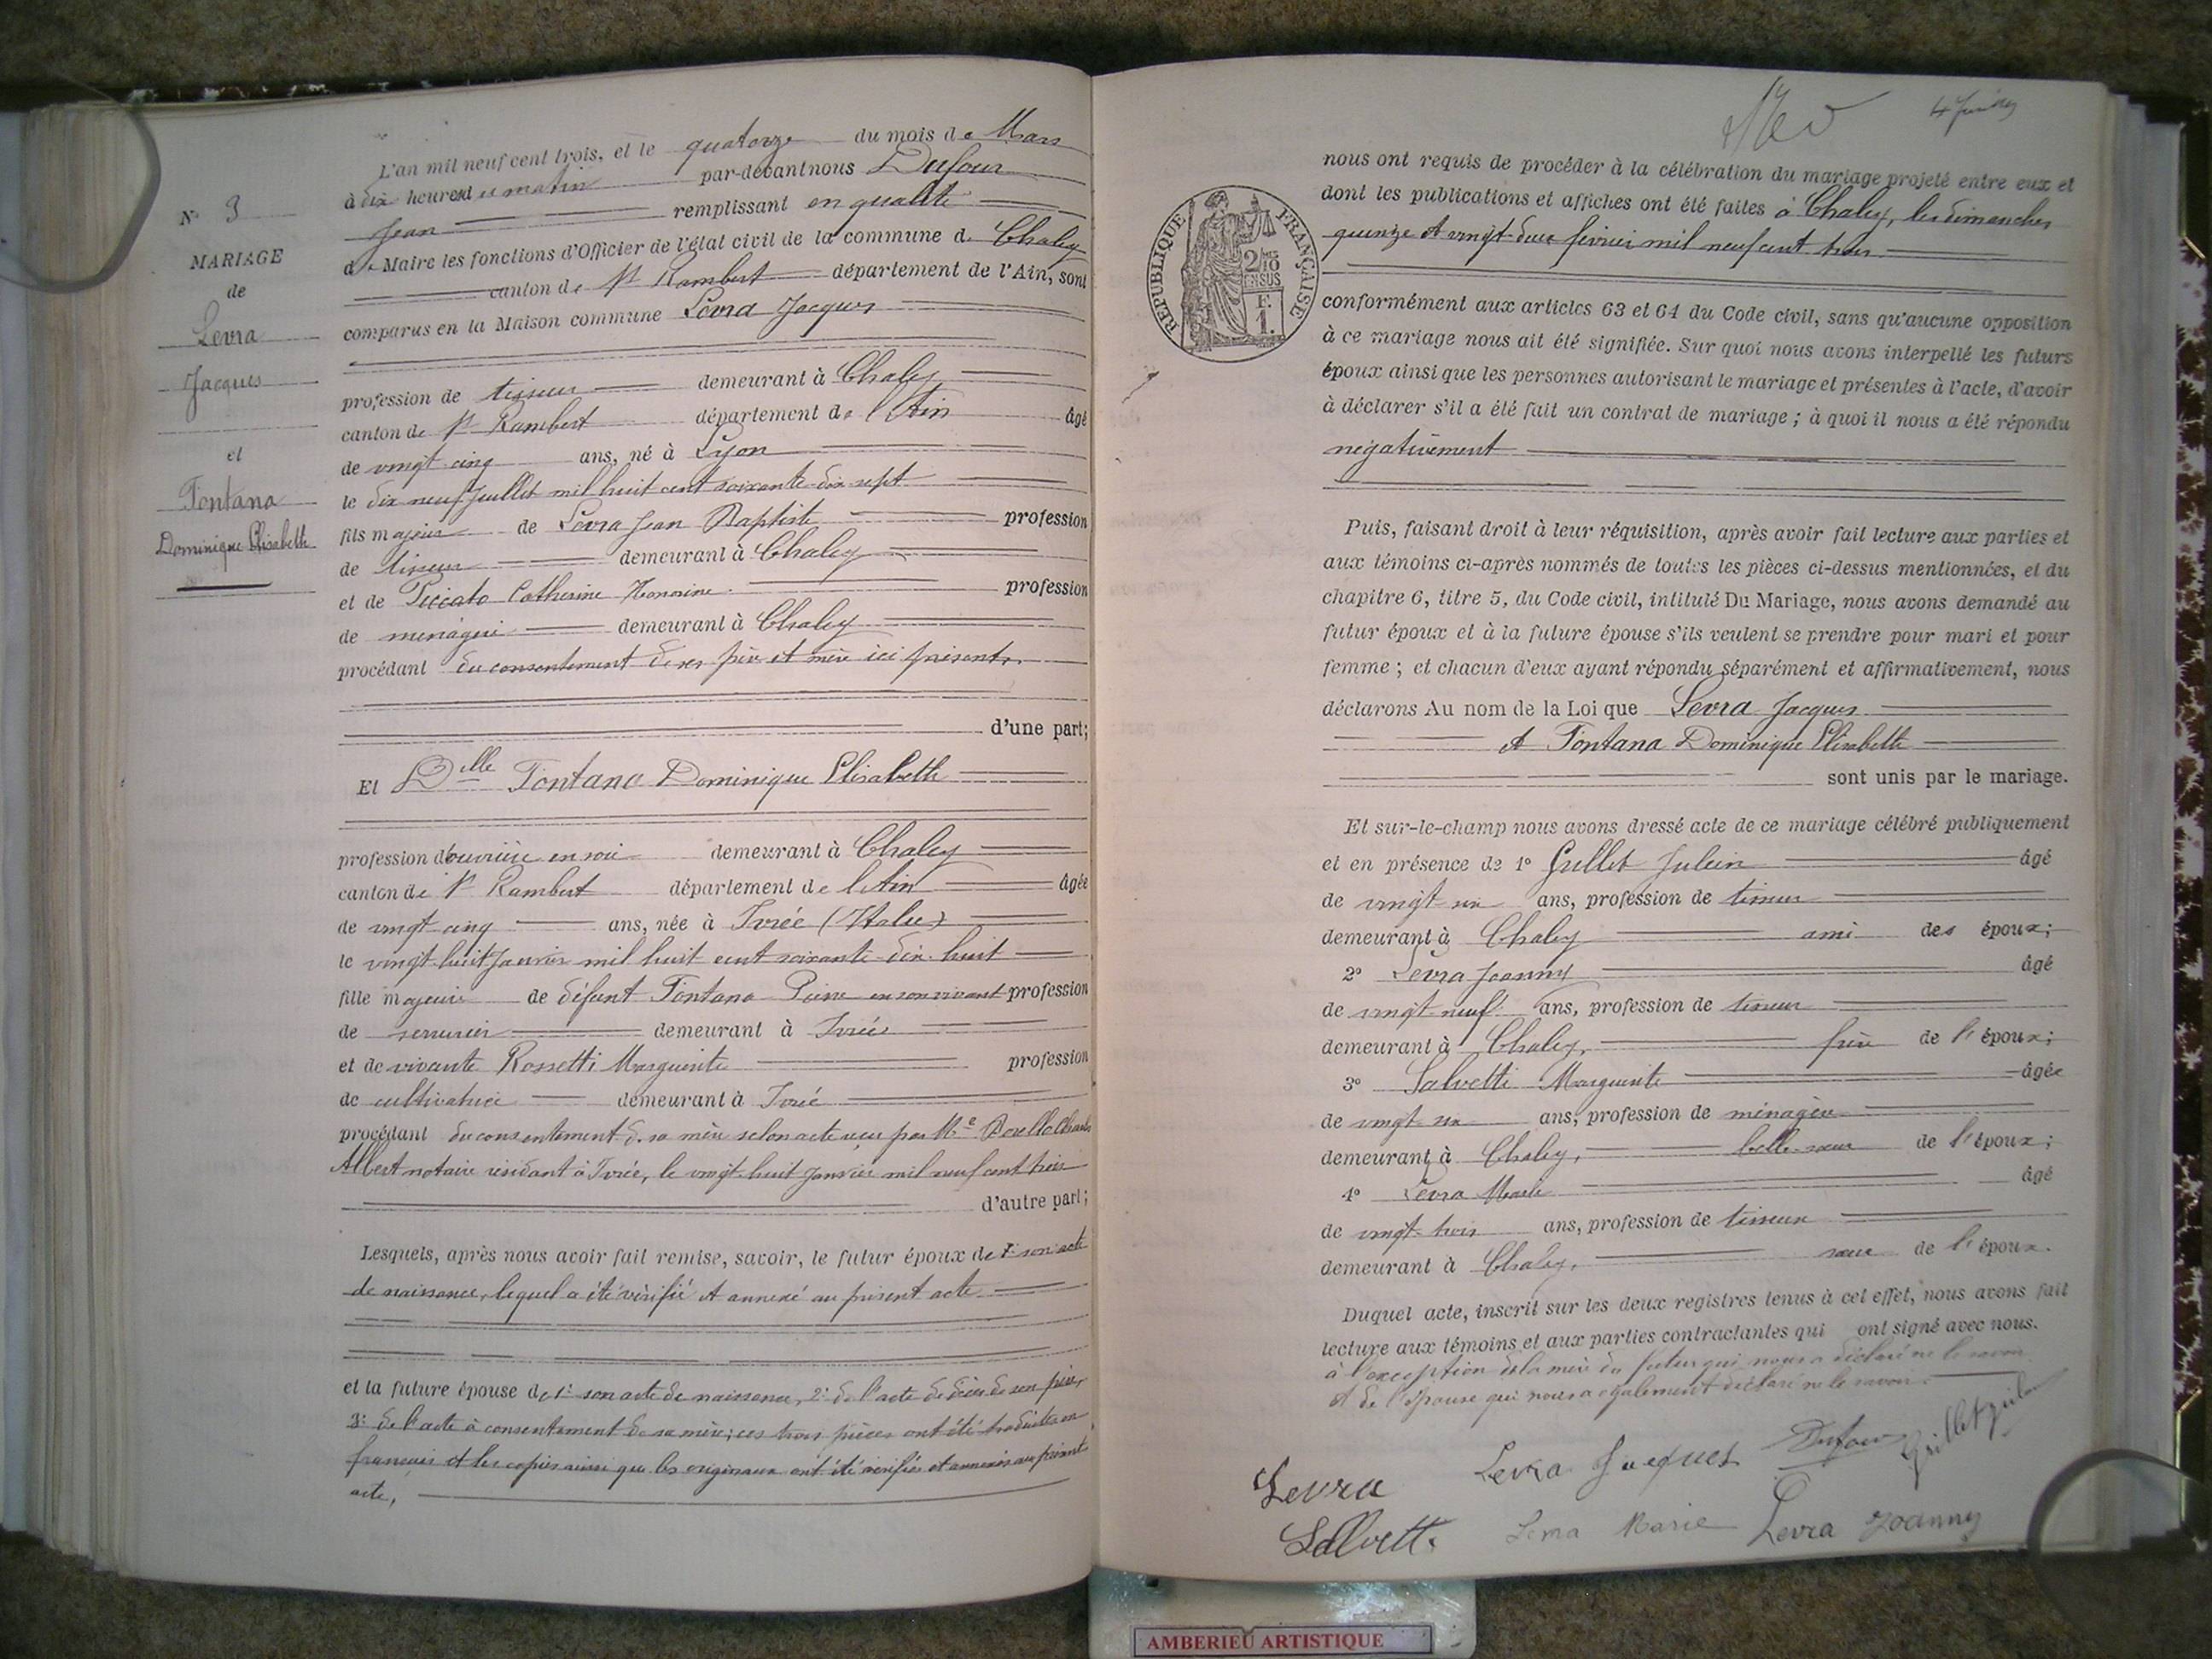 N° 3
MARIAGE
de
Levra
Jacques
et
Fontana
Dominique Elisabeth
L'an mil neuf cent trois, et le quatorze du mois de Mars
à dix heures du matin par-devant nous Dufour
Jean remplissant en qualité
de Maire les fonctions d'Officier de l'état civil de la commune de Chaley
canton de St Rambert département de l'Ain, sont
comparus en la Maison commune Levra Jacques
profession de tisseur demeurant à Chaley
canton de St Rambert département de l'Ain âgé
de vingt cinq ans, né à Lyon
le dix neuf Juillet mil huit cent soixante-dix sept
fils majeur de Levra Jean Baptiste profession
de tisseur demeurant à Chaley
et de Catherine Honorine profession
de ménagère demeurant à Chaley
procédant du consentement de ses père et mère ici présents
d'une part;
Et Delle Fontana Dominique Elisabeth
profession d'ouvrière en soie demeurant à Chaley
canton de St Rambert département de l'Ain âgée
de vingt cinq ans, née à Ivrée (Italie)
le vingt-huit Janvier mil huit cent soixante-dix-huit
fille majeure de défunt Fontana en son vivant profession
de serrurier demeurant à Ivrée
et de vivante Rossetti Marguerite profession
de cultivatrice demeurant à Ivrée
procédant du consentement de sa mère selon acte reçu par Me Borello Charles
Albert notaire résidant à Ivrée, le vingt-huit Janvier mil neuf cent trois
d'autre part;
Lesquels, après nous avoir fait remise, savoir, le futur époux de 1° son acte
de naissance, lequel a été vérifié et annexé au présent acte
et la future épouse de 1° son acte de naissance, 2° de l'acte de décès de son père,
3° de l'acte à consentement de sa mère; ces trois pièces ont été traduites en
français et les copies ainsi que les originaux ont été vérifiés et annexés au présent
acte,
RÉPUBLIQUE FRANÇAISE
2/10
EN SUS
F.
1.
nous ont requis de procéder à la célébration du mariage projeté entre eux et
dont les publications et affiches ont été faites à Chaley, les dimanches
quinze et vingt-deux février mil neuf cent trois
conformément aux articles 63 et 64 du Code civil, sans qu'aucune opposition
à ce mariage nous ait été signifiée. Sur quoi nous avons interpellé les futurs
époux ainsi que les personnes autorisant le mariage et présentes à l'acte, d'avoir
à déclarer s'il a été fait un contrat de mariage; à quoi il nous a été répondu
négativement
Puis, faisant droit à leur réquisition, après avoir fait lecture aux parties et
aux témoins ci-après nommés de toutes les pièces ci-dessus mentionnées, et du
chapitre 6, titre 5, du Code civil, intitulé Du Mariage, nous avons demandé au
futur époux et à la future épouse s'ils veulent se prendre pour mari et pour
femme; et chacun d'eux ayant répondu séparément et affirmativement, nous
déclarons Au nom de la Loi que Levra Jacques
et Fontana Dominique Elisabeth
sont unis par le mariage.
Et sur-le-champ nous avons dressé acte de ce mariage célébré publiquement
et en présence de 1° Gullet Julien âgé
de vingt-un ans, profession de tisseur
demeurant à Chaley ami des époux;
2° Levra Joanny âgé
de vingt-neuf ans, profession de tisseur
demeurant à Chaley, frère de l'époux;
3° Salvetti Marguerite âgée
de vingt-un ans, profession de ménagère
demeurant à Chaley, belle-sœur de l'époux;
4° Levra Marie âgé
de vingt-trois ans, profession de tisseur
demeurant à Chaley, sœur de l'époux.
Duquel acte, inscrit sur les deux registres tenus à cet effet, nous avons fait
lecture aux témoins et aux parties contractantes qui ont signé avec nous.
à l'exception de la mère du futur qui nous a déclaré ne le savoir
et de l'épouse qui nous a également déclaré ne le savoir.
Levra Levra Jacques Dufour
Salvetti Levra Marie Levra Joanny
AMBERIEU ARTISTIQUE